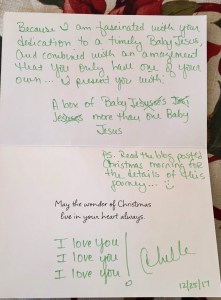 Because I am fascinated with your
dedication to a timely Baby Jesus,
and combined with an amazement
that you only have one of your
own... I present you with:
A box of Baby Jesuses
Jesuses more than one Baby
Jesus
PS. Read the blog posted
Christmas morning for
the details of this
journey...
May the wonder of Christmas
live in your heart always.
I love you
I love you
I love you!
12/25/17